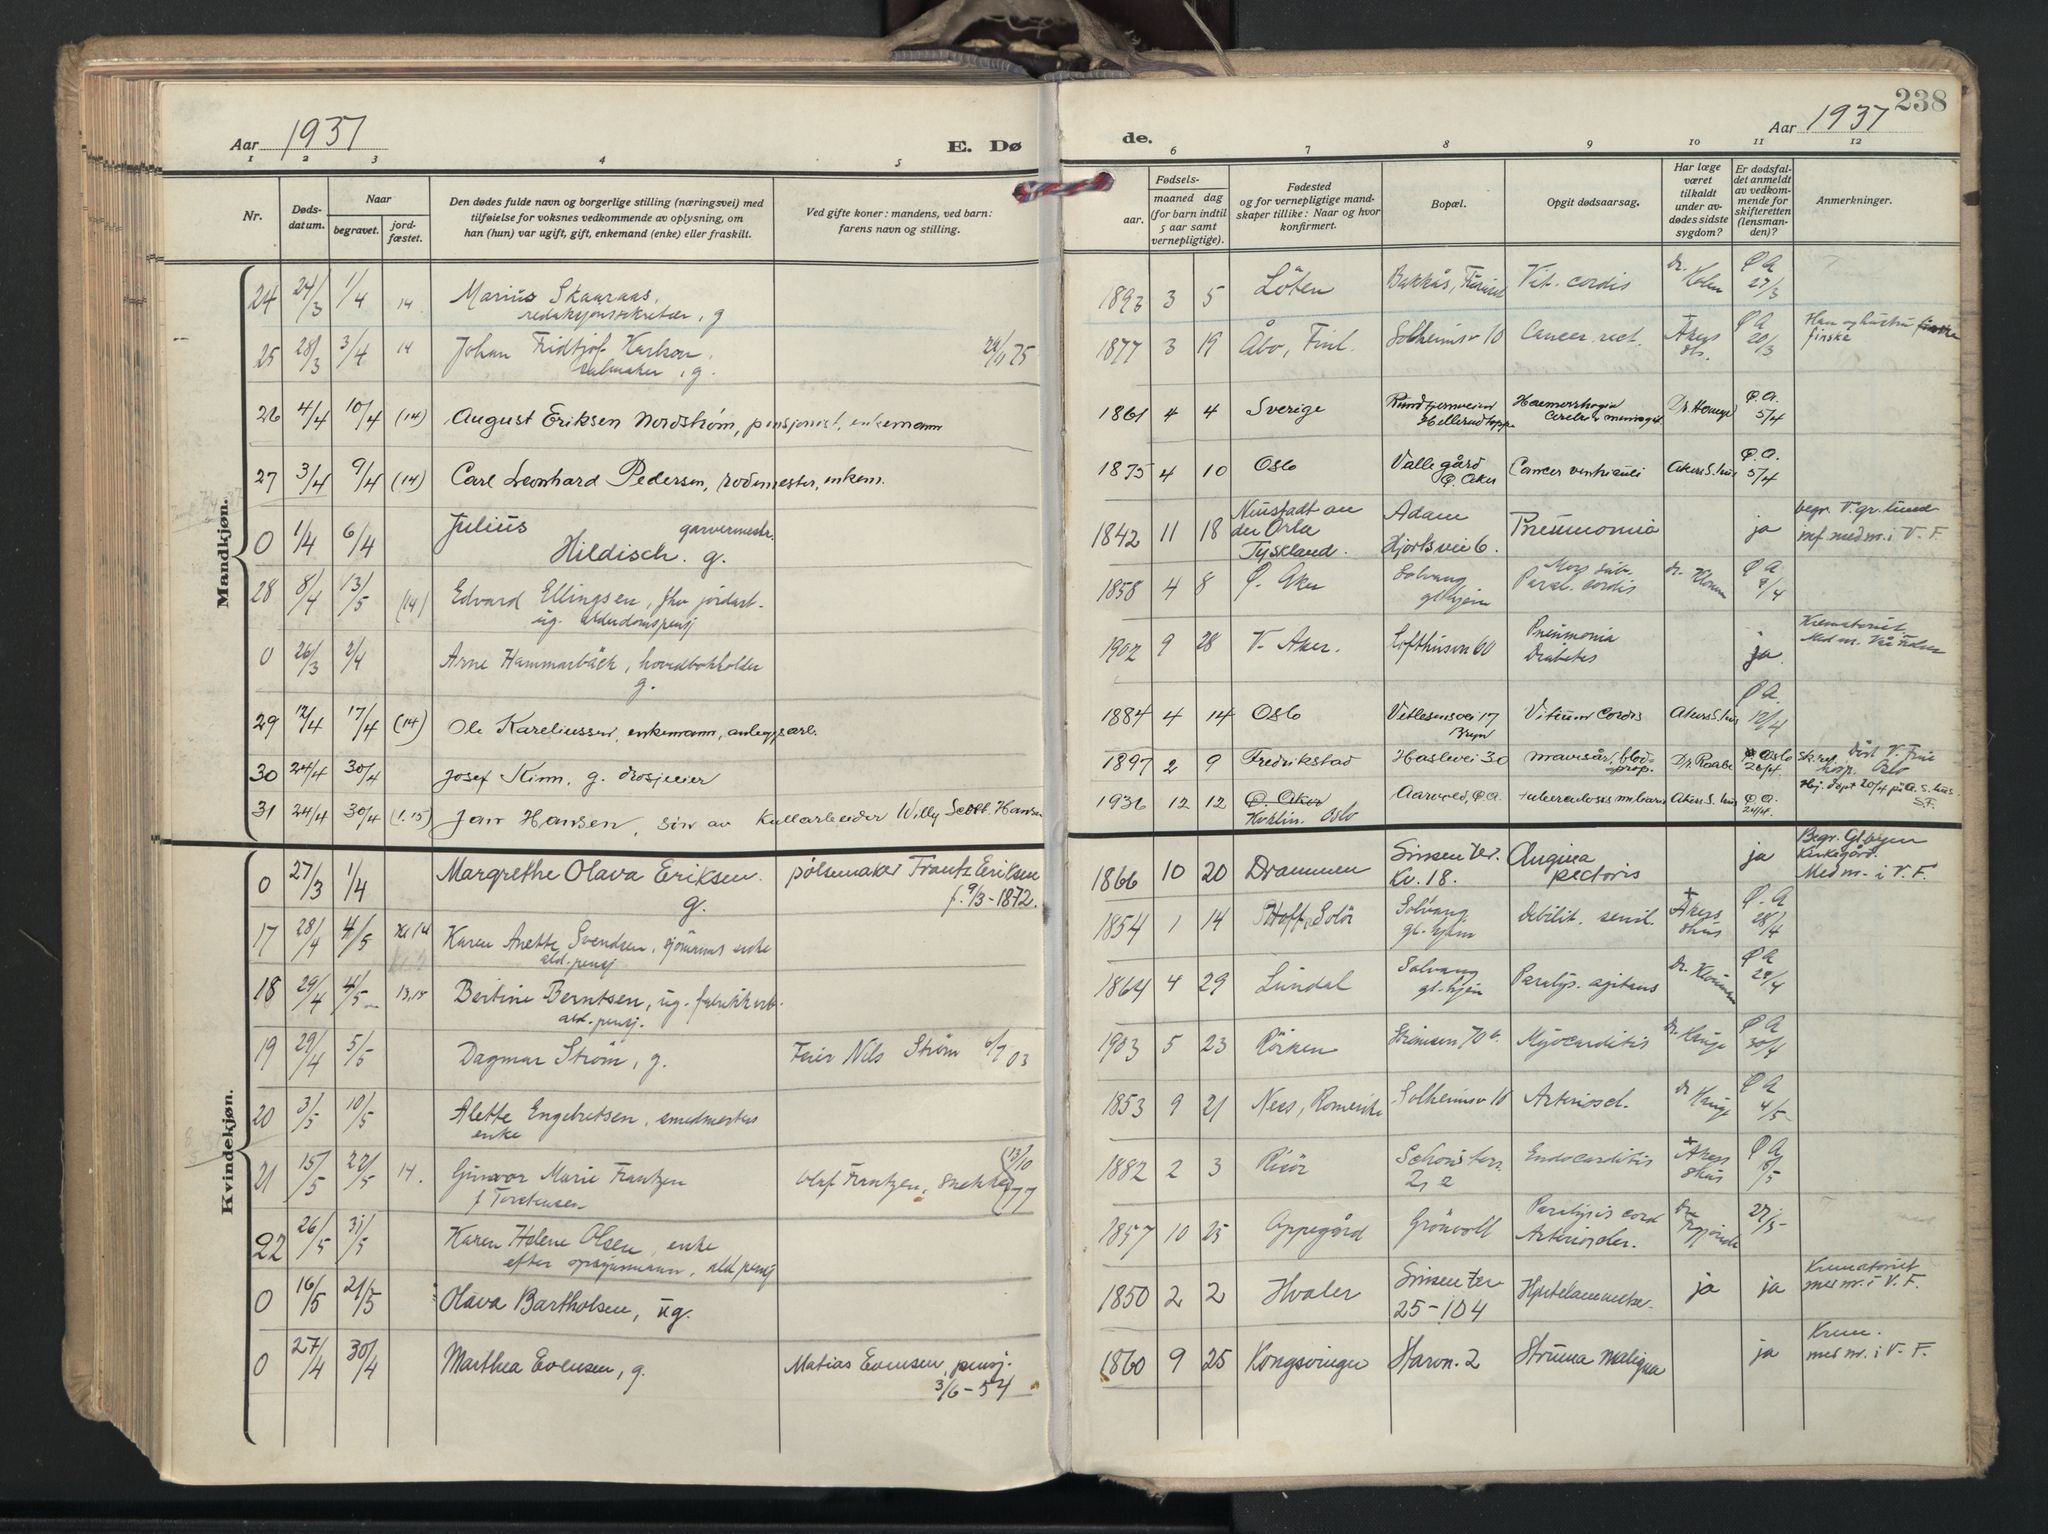 238
Aar 1937
E. Dø
de.
Aar 1937
1 2 3 4 5 6 7 8 9 10 11 12
Nr.
Døds-
datum.
Naar
begravet.
jord-
fæstet.
Den dødes fulde navn og borgerlige stilling (næringsvei) med
tilføielse for voksnes vedkommende av oplysning, om
han (hun) var ugift, gift, enkemand (enke) eller fraskilt.
Ved gifte koner: mandens, ved barn:
farens navn og stilling.
Fødsels-
aar.
maaned dag
(for barn indtil
5 aar samt
vernepligtige).
Fødested
og for vernepligtige mand-
skaper tillike: Naar og hvor
konfirmert.
Bopæl.
Opgit dødsaarsag.
Har læge
været
tilkaldt
under av-
dødes sidste
sygdom?
Er dødsfal-
det anmeldt
av vedkom-
mende for
skifteretten
(lensman-
den)?
Anmerkninger.
Mandkjøn.
24 24/3 1/4 14. Marius Skaaraas, 1893 3 5 Löten Bakkås, Vit. cordis dr. Holm Ø A 27/3
redaksjonssekretær, g
25 28/3 3/4 14 Johan Fridtjof Karlson, 75 1877 3 19 Åbo, Finl. Solheimsv 10 Cancer rect. Akers Ø A 20/3 Han og hustru finske
salmaker, g.
26 4/4 10/4 (14) August Eriksen Nordstrøm, pensjonist, enkemann 1861 4 4 Sverige Haemorrhagia Ø.A. 5/4
27 3/4 9/4 (14) Carl Leonhard Pedersen, rodemester, enkem. 1875 4 10 Oslo Valle gård Ø. Aker Cancer ventriculi Akers S. hus Ø.A. 5/4
0 1/4 6/4 Julius garvermestr. 1842 11 18 Neustadt an Adam Pneumonia ja begr. V. gr. lund
Hildisch. g. der Orla Tyskland. Hjortsvei 6. inf. med nr. i V. F.
28 8/4 13/5 (14) Edvard Ellingsen, fhv jordarb. 1858 4 8 Ø. Aker Solvang gl.hjem Paral. cordis dr. Ø A /4
ug. alderdomspensj
0 26/3 2/4 Arne Hammarbäck, hovedbokholder 1902 9 28 V. Aker. Lofthusv 60 Pneumonia Diabetes ja. Krematoriet
g. Med nr.
29 12/4 17/4 (14) Ole Kareliussen, enkemann, anleggsarb. 1884 4 14 Oslo Vetlesensvei 17 Bryn Vitium Cordis Akers S. hus Ø A. 12/4
30 24/4 30/4 Josef Kinn, g. drosjeeier 1897 2 9 Fredrikstad Haslevei 30 mavesår, blod- prop. Dr. Raabe Oslo 26/4
31 24/4 30/4 (1.15) Jan Hansen, søn av kullarbeider Willy Hansen 1936 12 12 Ø. Aker Oslo Aarvold, Ø.A. tuberculosis miliaris Akers S. hus Ø.A. 24/4. Hj. døpt 20/4 på A. S. hus S.F.
Kvindekjøn.
0 27/3 1/4 Margrethe Olava Eriksen. g. pølsemaker Frantz Eriksen f. 9/3-1872. 1866 10 20 Drammen Sinsen ter. Kv. 18. Angina pectoris ja Begr. Gl. byen Kirkegård. Med nr. i V. F.
17 28/4 4/5 kl 14 Karen Anette Svendsen, sjömanns enke 1854 1 14 Hoff, Solör Solvang gl. hjem debilit. senil. + Akers shus Ø. A 28/4
ald. pensj
18 29/4 4/5 13,15 Bertine Berntsen, ug. fabrikkarb. 1864 4 29 Lundal Solvang gl. hjem Paralys. agitans Dr. Ø A 29/4
ald. pensj.
19 29/4 5/5 Dagmar Strøm, g. Feier Nils Strøm 03 1903 5 23 Röiken 70 b. Myocarditis Dr. Hauge Ø A 30/4
20 3/5 10/5 Alette Engebretsen, smedmesters 1853 9 21 Nes, Romerike Solheimsv 10 Arterioscl. dr Hauge Ø A 4/5
enke
21 15/5 22/5 14. Gunvor Marie Frantzen Olaf Frantzen, snekker (13/10 77) 1882 2 3 Risör 2, e Endocarditis + Akers shus Ø A /5
f Torstensen
22 26/5 31/5 Karen Helene Olsen, enke 1857 10 25 Oppegård Grönvoll Paralysis cord Arterioscler. Dr. 27/5
efter opsynsmann, ald pensj
0 16/5 21/5 Olava Bartholsen, ug. 1850 2 2 Hvaler Sinsen ter 25-104 Hjertelammelse. ja ja Krematoriet med nr. i V. F.
0 27/4 30/4 Marthea Evensen, g. Matias Evensen, pensj. 3/6-54 1860 9 25 Kongsvinger Haron. 2 Struma maligna ja Krem. med nr. i V. F.